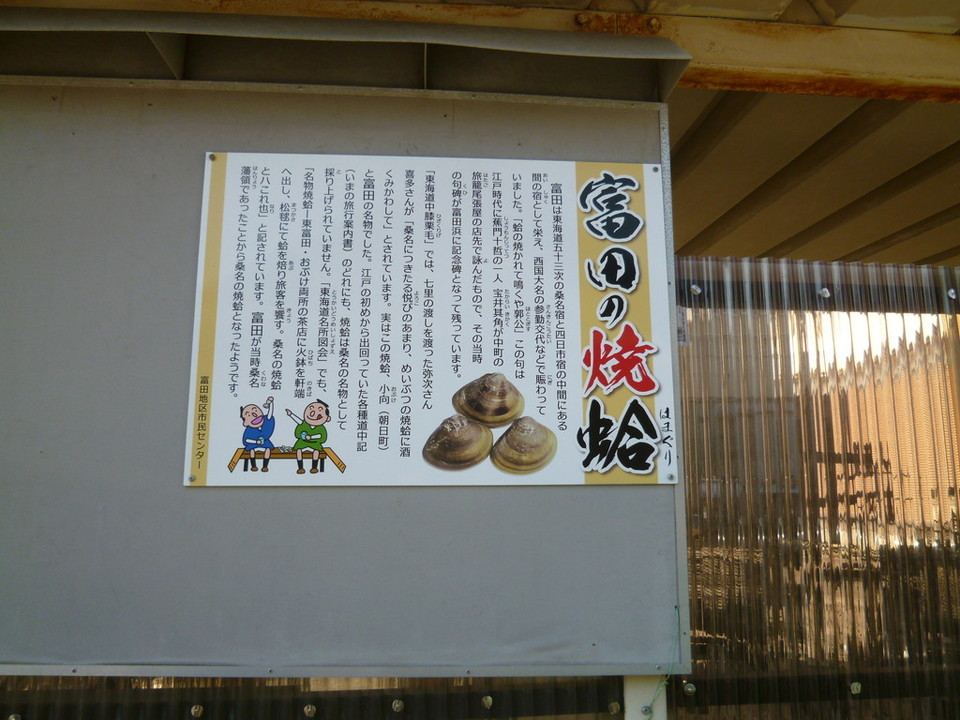 富田の焼蛤
はまぐり
富田は東海道五十三次の桑名宿と四日市宿の中間にある
間の宿として栄え、西国大名の参勤交代などで賑わって
いました。「蛤の焼かれて鳴くや郭公」この句は
江戸時代に蕉門十哲の一人 宝井其角が中町の
旅籠尾張屋の店先で詠んだもので、その当時
の句碑が富田浜に記念碑となって残っています。
「東海道中膝栗毛」では、七里の渡しを渡った弥次さん
喜多さんが「桑名につきたる悦びのあまり、めいぶつの焼蛤に酒
くみかわして」とされています。実はこの焼蛤、小向（朝日町）
と富田の名物でした。江戸の初めから出回っていた各種道中記
（いまの旅行案内書）のどれにも、焼蛤は桑名の名物として
採り上げられていません。「東海道名所図会」でも、
「名物焼蛤ー東富田・おぶけ両所の茶店に火鉢を軒端
へ出し、松毬にて蛤を焙り旅客を饗す。桑名の焼蛤
とハこれ也」と記されています。富田が当時桑名
藩領であったことから桑名の焼蛤となったようです。
富田地区市民センター